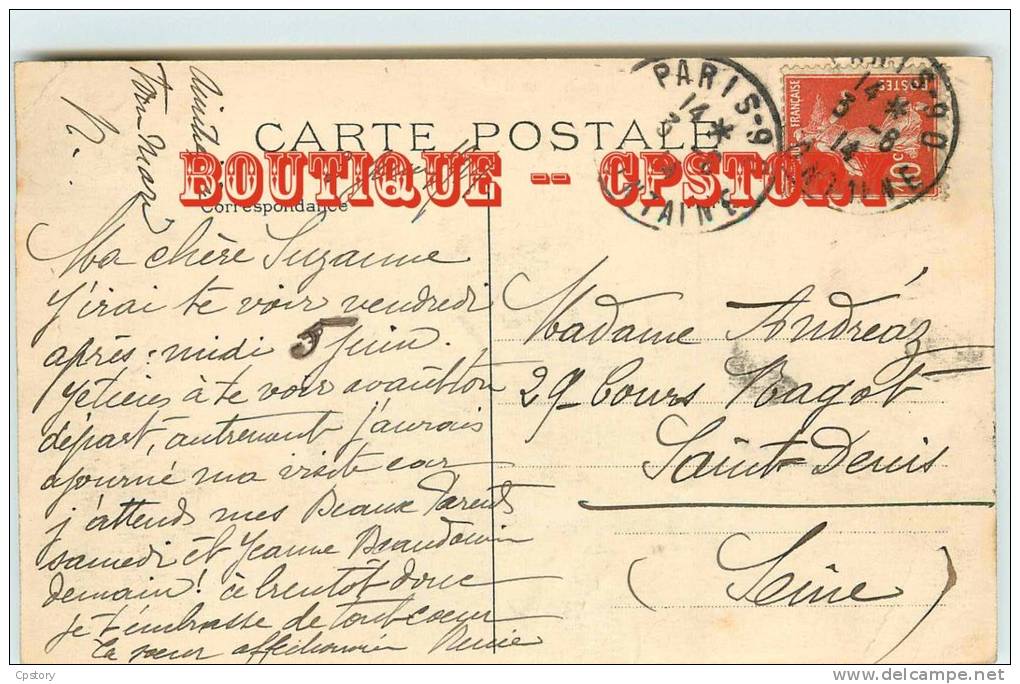 CARTE POSTALE
BOUTIQUE -- CPSTORY
Correspondance
Ma chère Suzanne
J'irai te voir vendredi
après-midi 5 Juin.
Je tiens à te voir avant ton
départ, autrement j'aurais
ajourné ma visite car
j'attends mes Beaux Parents
samedi et Jeanne Beaudouin
demain! à bientôt donc
Je t'embrasse de tout coeur
ta soeur affectionnée
ton Mari
PARIS-9
14 *
3 -6
14
POSTES
FRANÇAISE
10c
Madame Andréaz
29 Cours Ragot
Saint-Denis
(Seine)
Cpstory
delcampe.net